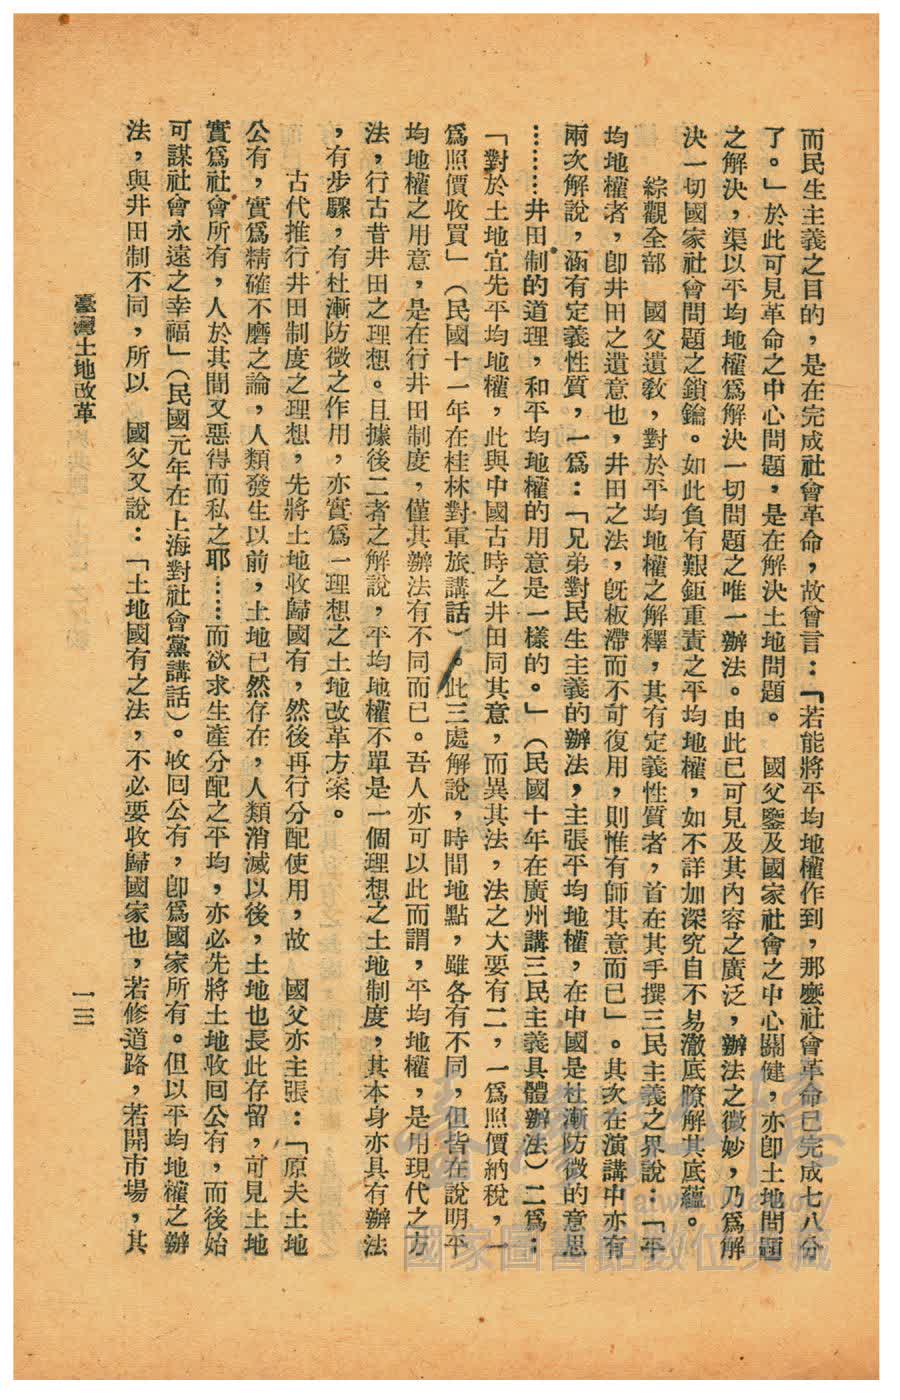 而民生主義之目的，是在完成社會革命，故曾言：「若能將平均地權作到，那麼社會革命已完成七八分
了。」於此可見革命之中心問題，是在解決土地問題。　國父鑒及國家社會之中心關健，亦卽土地問題
之解決，渠以平均地權爲解決一切問題之唯一辦法。由此已可見及其內容之廣泛，辦法之微妙，乃爲解
決一切國家社會問題之鎖鑰。如此負有艱鉅重責之平均地權，如不詳加深究自不易澈底瞭解其底蘊。
綜觀全部　國父遺敎，對於平均地權之解釋，其有定義性質者，首在其手撰三民主義之界說：「平
均地權者，卽井田之遺意也，井田之法，旣板滯而不可復用，則惟有師其意而已」。其次在演講中亦有
兩次解說，涵有定義性質，一爲：「兄弟對民生主義的辦法，主張平均地權，在中國是杜漸防微的意思
………井田制的道理，和平均地權的用意是一樣的。」（民國十年在廣州講三民主義具體辦法）二爲：
「對於土地宜先平均地權，此與中國古時之井田同其意，而異其法，法之大要有二，一爲照價納稅，一
爲照價收買」（民國十一年在桂林對軍旅講話）。此三處解說，時間地點，雖各有不同，但皆在說明平
均地權之用意，是在行井田制度，僅其辦法有不同而已。吾人亦可以此而謂，平均地權，是用現代之方
法，行古昔井田之理想。且據後二者之解說，平均地權不單是一個理想之土地制度，其本身亦具有辦法
，有步驟，有杜漸防微之作用，亦實爲一理想之土地改革方案。
古代推行井田制度之理想，先將土地收歸國有，然後再行分配使用，故　國父亦主張：「原夫土地
公有，實爲精確不磨之論，人類發生以前，土地已然存在，人類消滅以後，土地也長此存留，可見土地
實爲社會所有，人於其間又惡得而私之耶……而欲求生產分配之平均，亦必先將土地收囘公有，而後始
可謀社會永遠之幸福」（民國元年在上海對社會黨講話）。收囘公有，卽爲國家所有。但以平均地權之辦
法，與井田制不同，所以　國父又說：「土地國有之法，不必要收歸國家也，若修道路，若開市場，其
臺灣土地改革
一三
臺灣記憶
taiwan memory
國家圖書館數位典藏